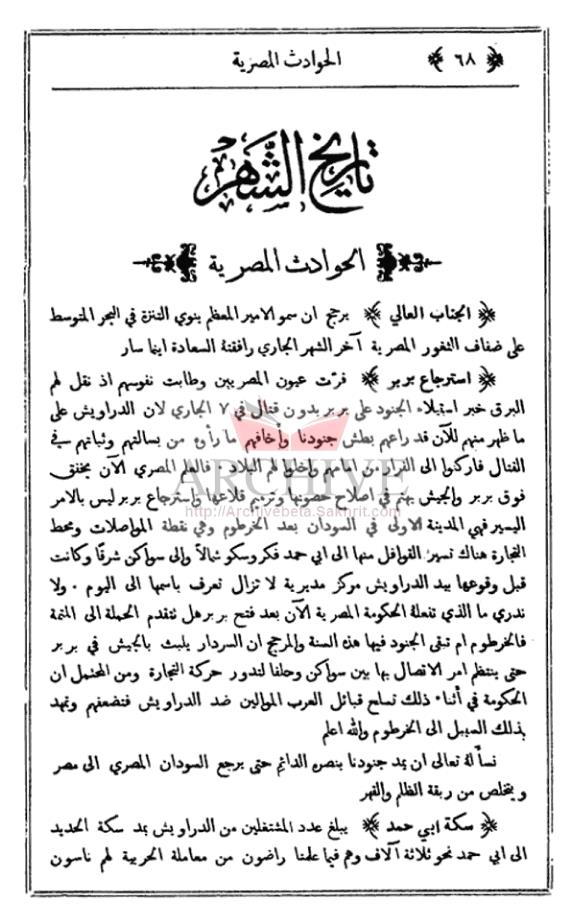 ﴿ ٦٨ ﴾ الحوادث المصرية
تاريخ الشهر
الحوادث المصرية
﴿ الجناب العالي ﴾ يرجح ان سمو الامير المعظم ينوي التنزه في البحر المتوسط
على ضفاف الثغور المصرية آخر الشهر الجاري رافقته السعادة اينما سار
﴿ استرجاع بربر ﴾ قرّت عيون المصريين وطابت نفوسهم اذ نقل لهم
البرق خبر استيلاء الجنود على بربر بدون قتال في ٧ الجاري لان الدراويش على
ما ظهر منهم للآن قد راعهم بطش جنودنا وأخافهم ما رأوه من بسالتهم وثباتهم في
القتال فاركنوا الى الفرار من امامهم واخلوا لهم البلاد . فالعلم المصري الآن يخفق
فوق بربر والجيش يهتم في اصلاح حصونها وترميم قلاعها واسترجاع بربر ليس بالامر
اليسير فهي المدينة الاولى في السودان بعد الخرطوم وهي نقطة المواصلات ومحط
التجارة هناك تسير القوافل منها الى ابي حمد فكروسكو شمالاً والى سواكن شرقًا وكانت
قبل وقوعها بيد الدراويش مركز مديرية لا تزال تعرف باسمها الى اليوم . ولا
ندري ما الذي تفعلة الحكومة المصرية الآن بعد فتح بربر هل تتقدم الحملة الى المتمة
فالخرطوم ام تبقى الجنود فيها هذه السنة والمرجح ان السردار يلبث بالجيش في بربر
حتى ينتظم امر الاتصال بها بين سواكن وحلفا لتدور حركة التجارة ومن المحتمل ان
الحكومة في أثناء ذلك تسلح قبائل العرب الموالين ضد الدراويش فتضعفهم وتمهد
بذلك السبيل الى الخرطوم والله اعلم
نسألة تعالى ان يمد جنودنا بنصره الدائم حتى يرجع السودان المصري الى مصر
ويتخلص من ربقة الظلم والقهر
﴿ سكة ابي حمد ﴾ يبلغ عدد المشتغلين من الدراويش بمد سكة الحديد
الى ابي حمد نحو ثلاثة آلاف وهم فيما علمنا راضون من معاملة الحربية لهم ناسون
ARCHIVE
http://Archivebeta.Sakhrit.com